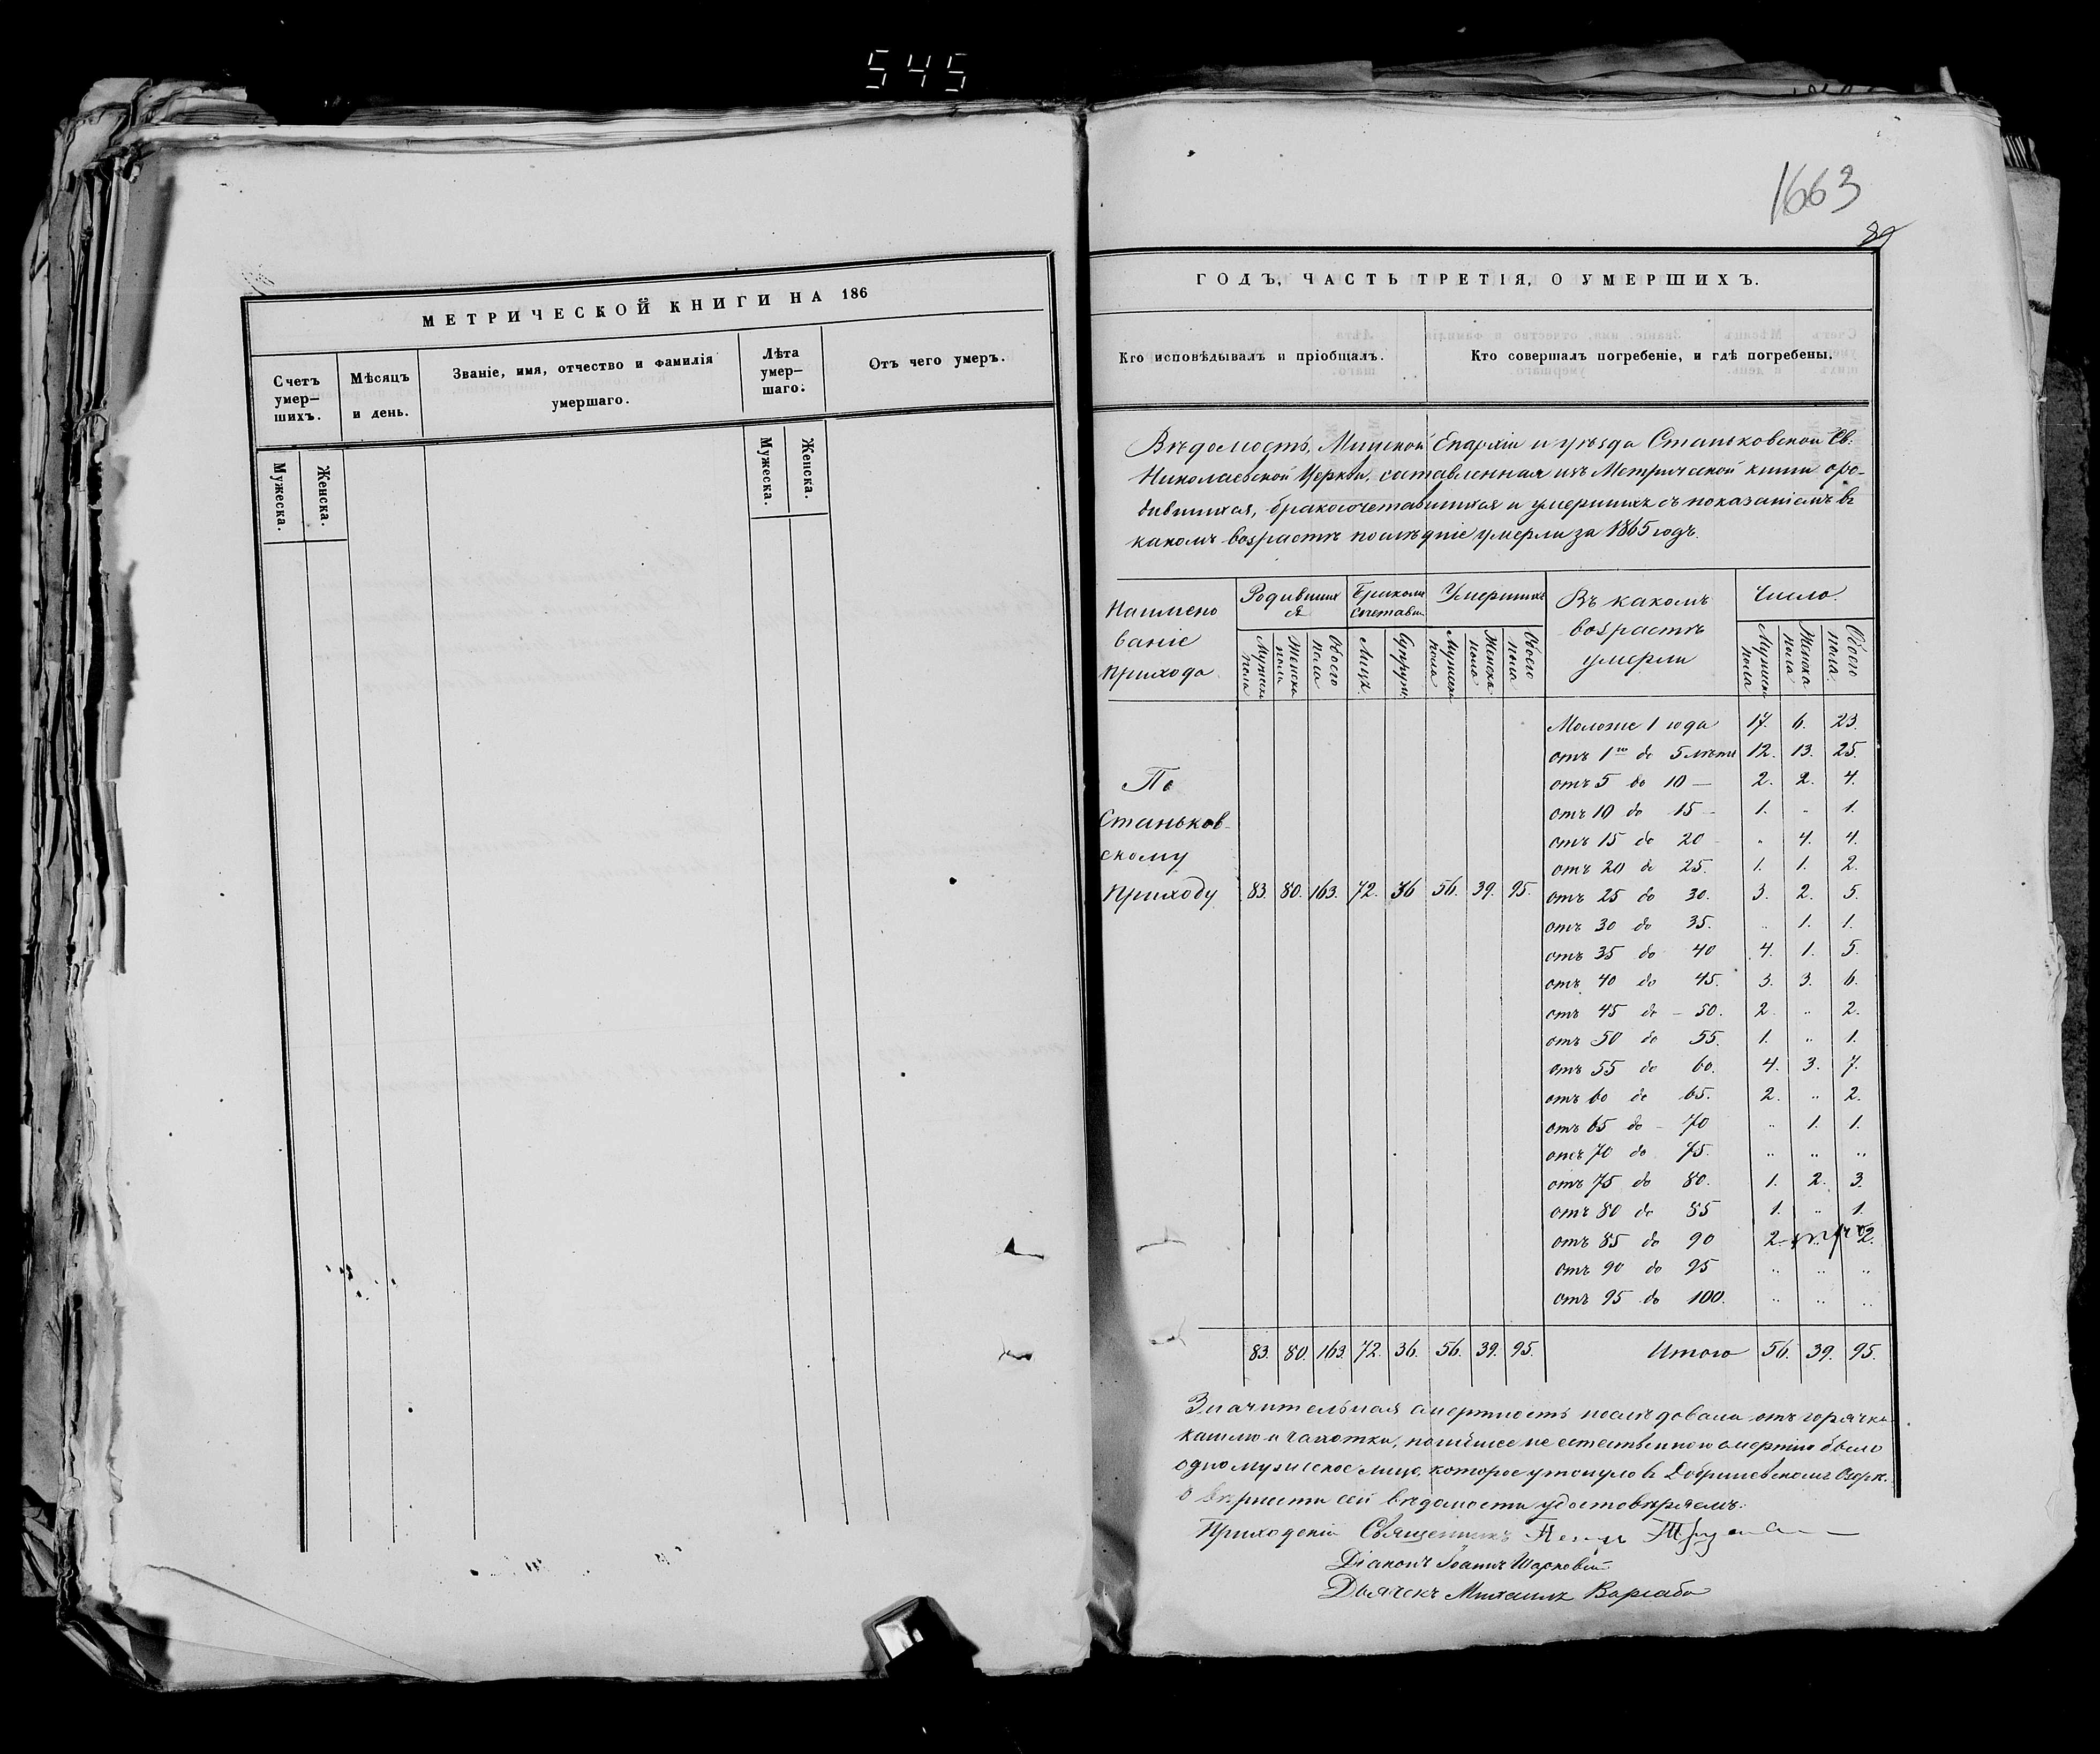 545
1663
МЕТРИЧЕСКОЙ КНИГИ НА 186
Счетъ умер— шихъ.
Мѣсяцъ и день.
Званіе, имя, отчество и фамилія умершаго.
Лѣта умер— шаго.
Отъ чего умеръ.
Мужеска.
Женска.
Мужеска.
Женска.
ГОДЪ, ЧАСТЬ ТРЕТІЯ, О УМЕРШИХЪ.
Кто исповѣдывалъ и пріобщалъ.
Кто совершалъ погребеніе, и гдѣ погребены.
Вѣдомость, Минской Епархіи и уѣзда Станьковской Св.
Николаевской Церкви, составленная изъ Метрической книги оро-
дившихся, бракосочетавшихся и умершихъ съ показаніемъ въ
какомъ возрастѣ послѣдніе умерли за 1865 годъ.
Наимено
ваніе
прихода
Родивших
ся
Бракомъ
Сочетавш
Умершихъ
Въ какомъ
возрастѣ
умерли
Число.
Мужеск пола
Женска пола
Обоего пола
Лицъ
Супруж
Мужеск пола
Женска пола
Обоего пола
Мужеск пола
Женска пола
Обоего пола
Моложе 1 года 17. 6. 23.
отъ 1го до 5 лѣтъ 12. 13. 25.
отъ 5 до 10 — 2. 2. 4.
отъ 10 до 15 — 1. „ 1.
отъ 15 до 20 „ 4. 4.
отъ 20 до 25. 1. 1. 2.
По
Станьков-
скому
Приходу 83. 80. 163. 72. 36 56. 39. 95.
отъ 25 до 30. 3. 2. 5.
отъ 30 до 35. „ 1. 1.
отъ 35 до 40 4. 1. 5.
отъ 40 до 45. 3. 3. 6.
отъ 45 до – 50. 2. „ 2.
отъ 50 до 55. 1. „ 1.
отъ 55 до 60. 4. 3. 7.
отъ 60 до 65. 2. „ 2.
отъ 65 до – 70 „ 1. 1.
отъ 70 до 75. „ „ „
отъ 75 до 80. 1. 2. 3.
отъ 80 до 85 1. „ 1.
отъ 85 до 90 2. 2.
отъ 90 до 95 „ „ „
отъ 95 до 100. „ „ „
83. 80. 163. 72. 36. 56. 39. 95. Итого 56. 39. 95.
Значительная смертность послѣдовала отъ горячки
кашлю и чахотки, помёшее не естественною смертію было
одно мужеское лицо, которое утонуло въ Озерк.
о вѣрности сей вѣдомости удостовѣряемъ:
Приходскій Священникъ
Діаконъ Іоаннъ
Дьячекъ Михаилъ